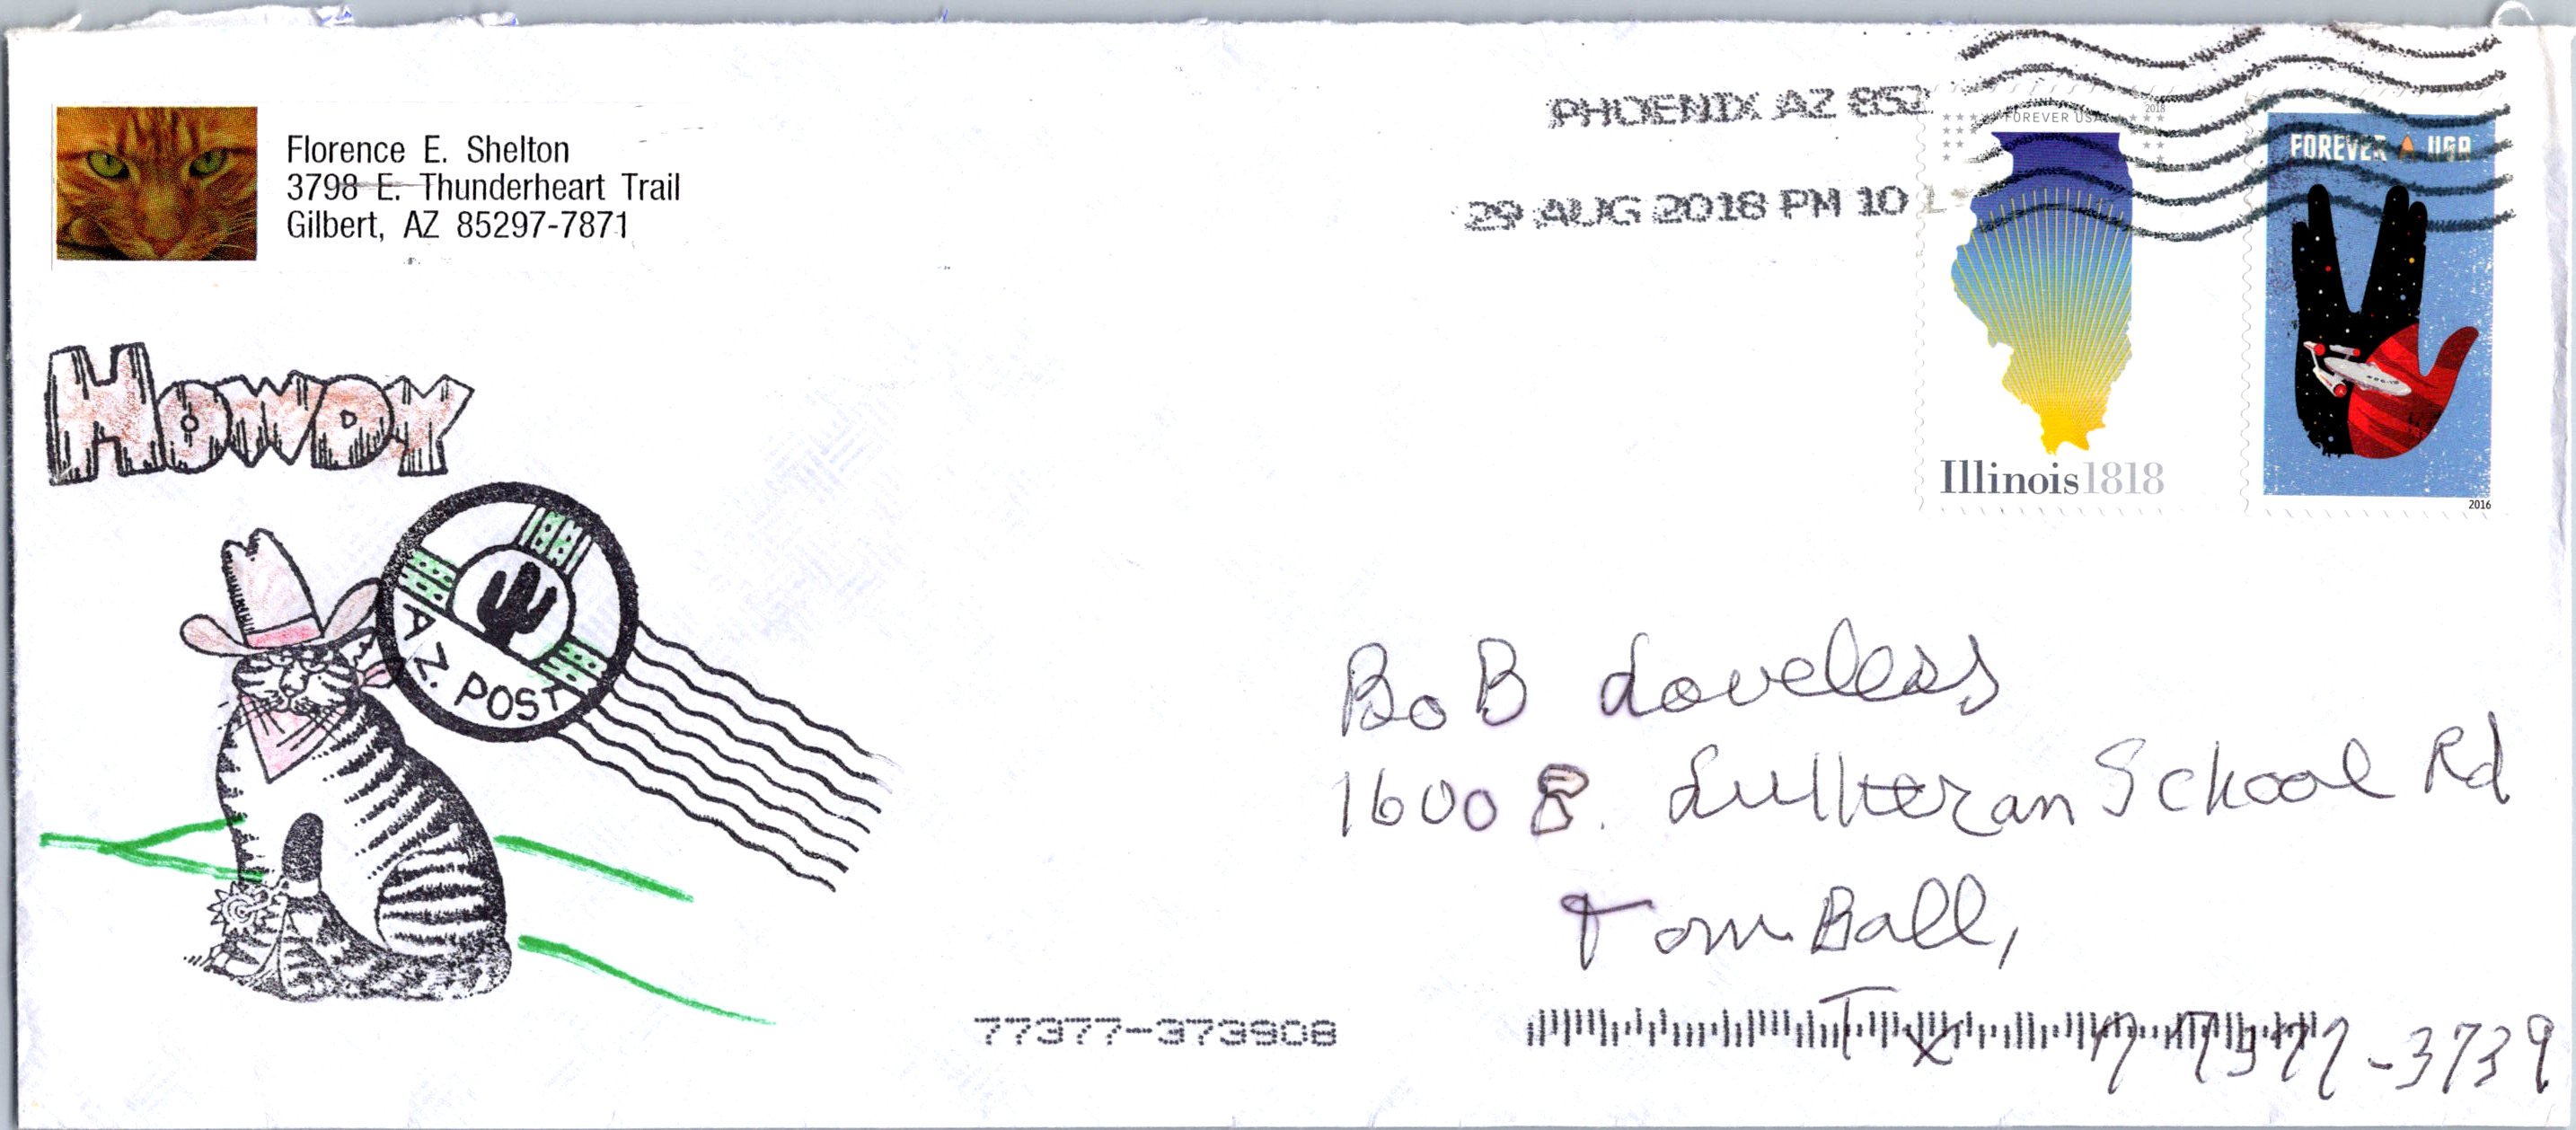 Florence E. Shelton
3798 E. Thunderheart Trail
Gilbert, AZ 85297-7871
PHOENIX AZ 852
29 AUG 2018 PM 10 L
FOREVER USA
2018
Illinois 1818
FOREVER USA
2016
HOWDY
AZ. POST
BoB Loveless
16008. Lutheran School Rd
Tom Ball,
TX 77377-3739
77377-373908